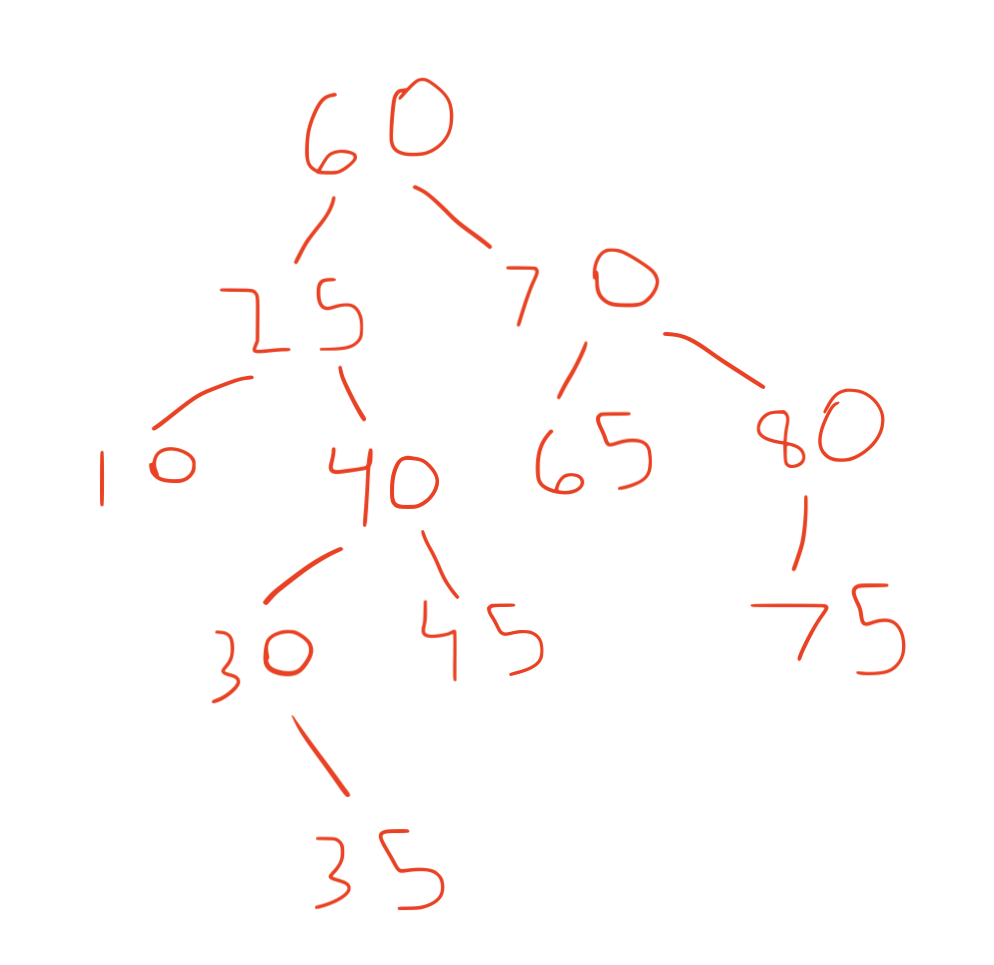 60
25 70
10 40 65 80
30 45 75
35